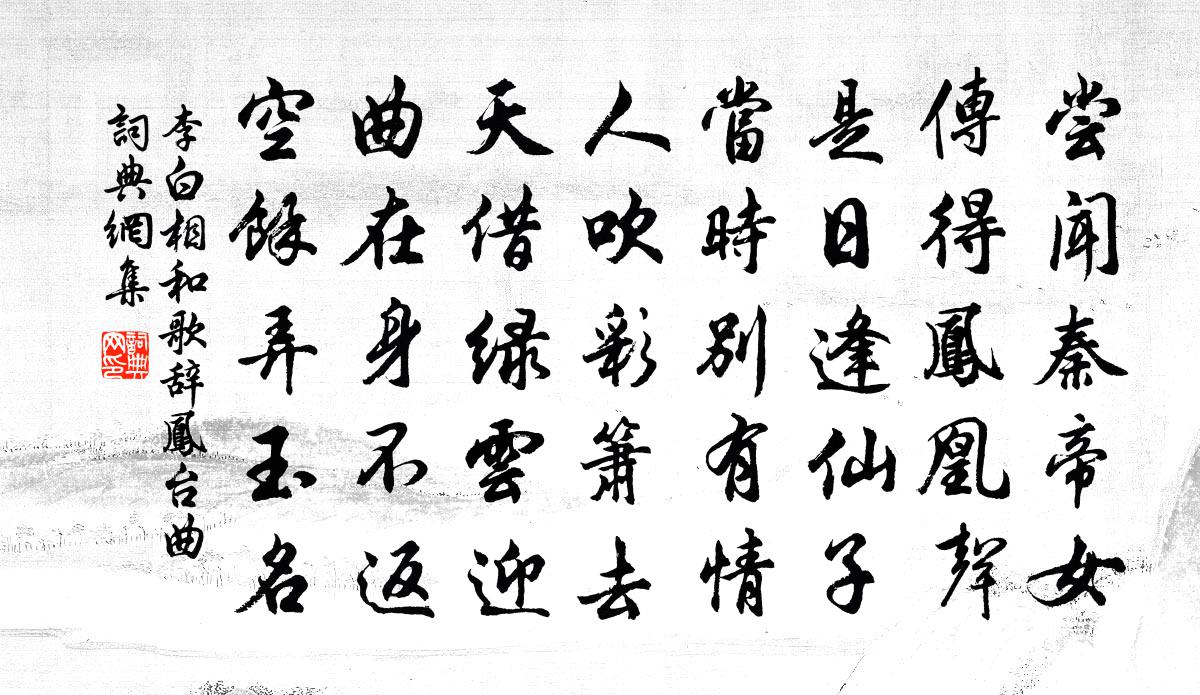 尝闻秦帝女
傳得鳳凰聲
是日逢仙子
當時別有情
人吹彩簫去
天借绿雲迎
曲在身不返
空餘弄玉名
李白相和歌辞鳳台曲
詞典網集
詞典
网印